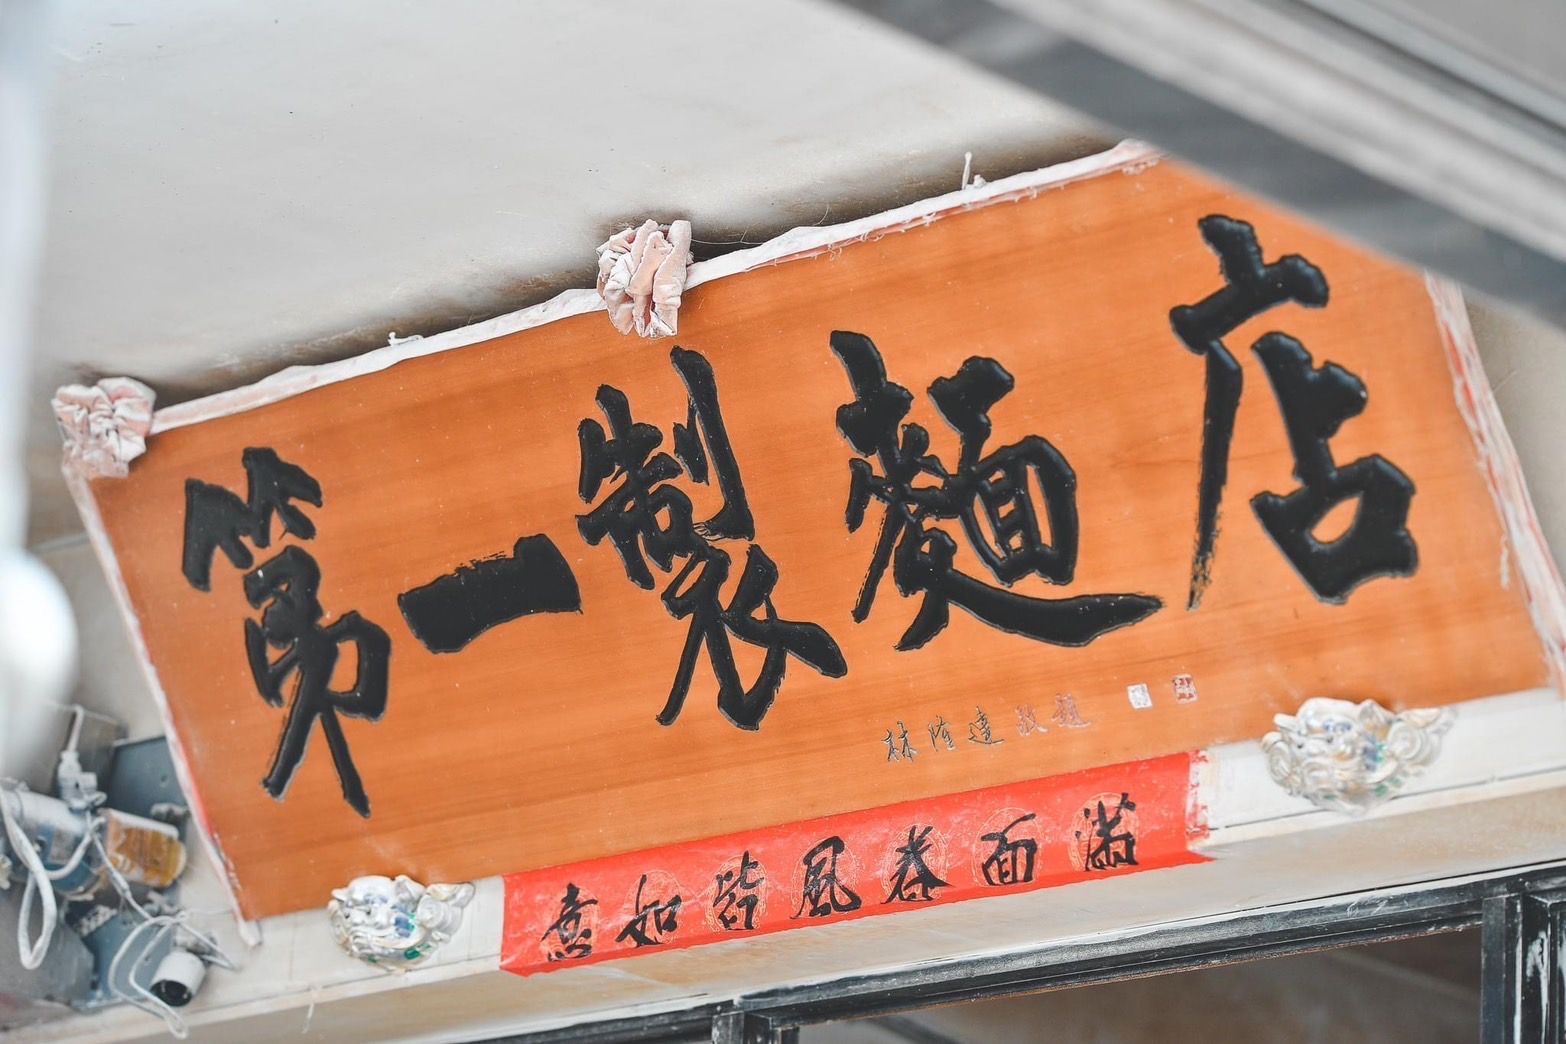 第一製麵店
林隆達敬題
意如皆風春面滿